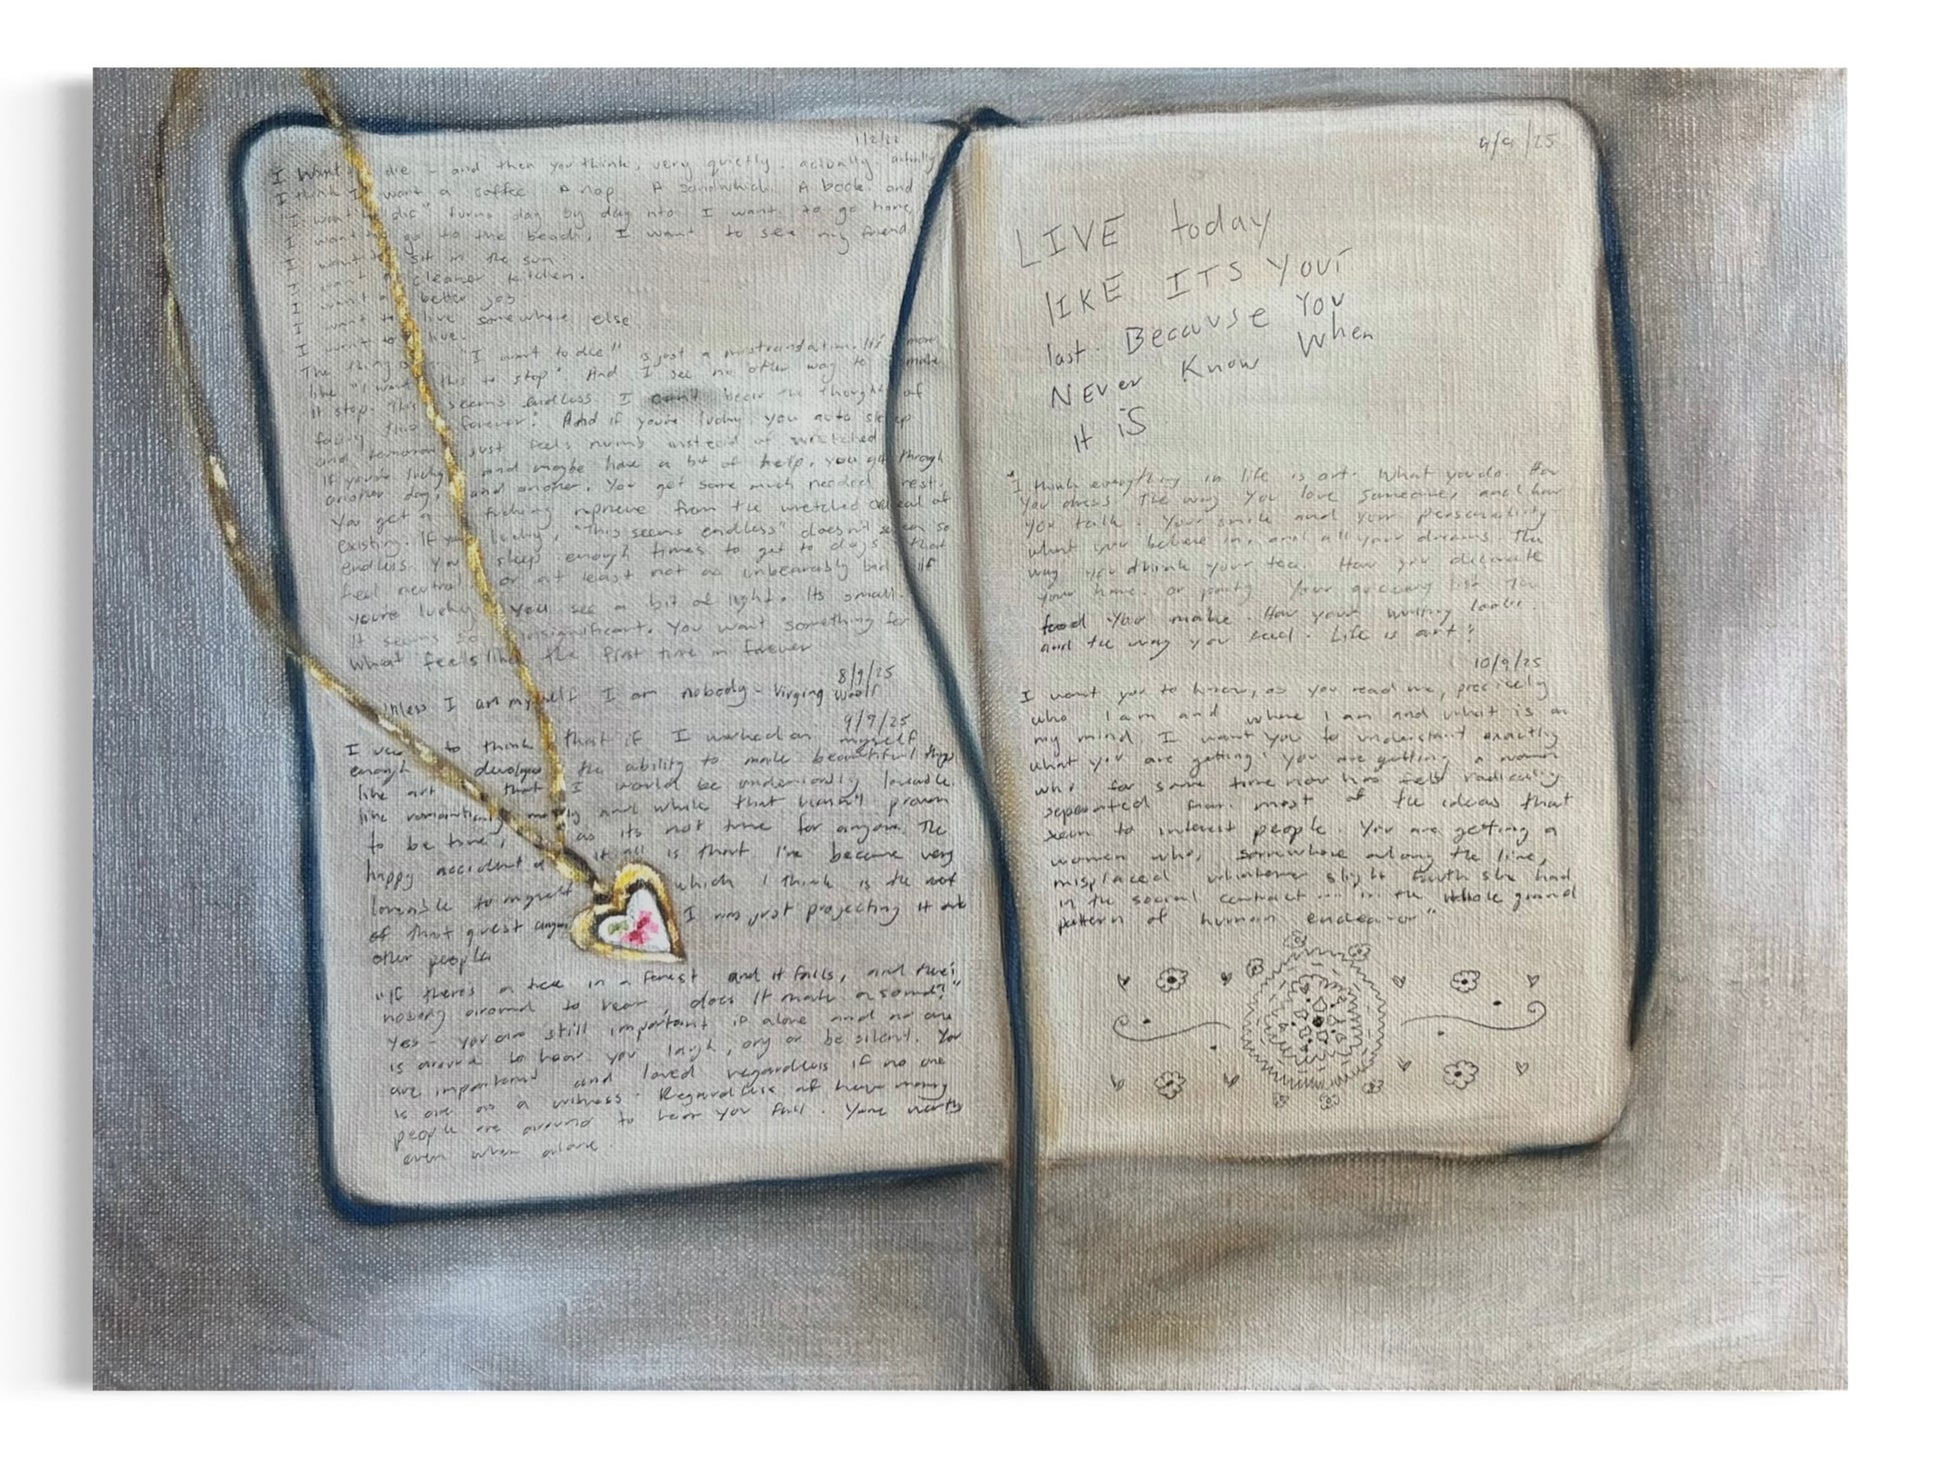 1/2/22
I want die - and then you think, very quietly, actually actually
I think I want a coffee. A nap. A sandwhich. A book. and
"I want to die" turns day by day into I want to go home
I want to go to the beach, I want to see my friend
I want to sit in the sun.
I want a cleaner kitchen.
I want a better job
I want to live somewhere else
I want to live.
The thing is "I want to die" is just a mistranslation. It's more
like "I want this to stop". And I see no other way to make
it stop. This seems endless. I can't bear the thought of
facing this forever. And if you're lucky you sleep
and tomorrow just feels numb instead of wretched
If you're lucky and maybe have a bit of help, you get through
another day, and another. You get some much needed rest.
You get a fucking reprieve from the wretched ordeal of
existing. If you lucky, "This seems endless" doesn't seem so
endless. You sleep enough times to get to days that
feel neutral or at least not as unbearably bad. If
you're lucky you see a bit of light. Its small.
It seems so insignificant. You want something for
what feels like the first time in forever
8/9/25
Unless I am myself I am nobody - Virging Woolf
9/9/25
I used to think that if I worked on myself
enough developed the ability to make beautiful things
like art that I would be undeniably loveable
like romantically and while that hasn't proven
to be true, as its not true for anyone. The
happy accident of it all is that I've become very
loveable to myself which I think is the
of that quest anyway I was just projecting it at
other people
"If there's a tree in a forest and it falls, and there's
nobody around to hear, does it make a sound?"
Yes - you are still important if alone and no one
is around to hear you laugh, cry or be silent. You
are important and loved regardless if no one
is as a witness. Regardless of how many
people are around to hear you fall. Your worth
even when alone.
9/9/25
LIVE today
lIKE ITS YOUr
last. Because You
NEVer Know When
it iS
"I think everything in life is art. What you do. How
You dress. The way you love someone, and how
you talk. Your smile and your personality
what you believe in, and all your dreams. The
way you drink your tea. How you decorate
your home. or party. Your grocery list. The
food you make. How your writing looks.
and the way you feel. Life is art."
10/9/25
I want you to know, as you read me, precisely
who I am and where I am and what is on
my mind. I want you to understant exactly
what you are getting: You are getting a woman
who for some time now has felt radically
seperated from most of the ideas that
seem to interest people. You are getting a
women who, somewhere along the line,
misplaced whatever slight faith she had
in the social contract ... in the whole grand
pattern of human endeavor"